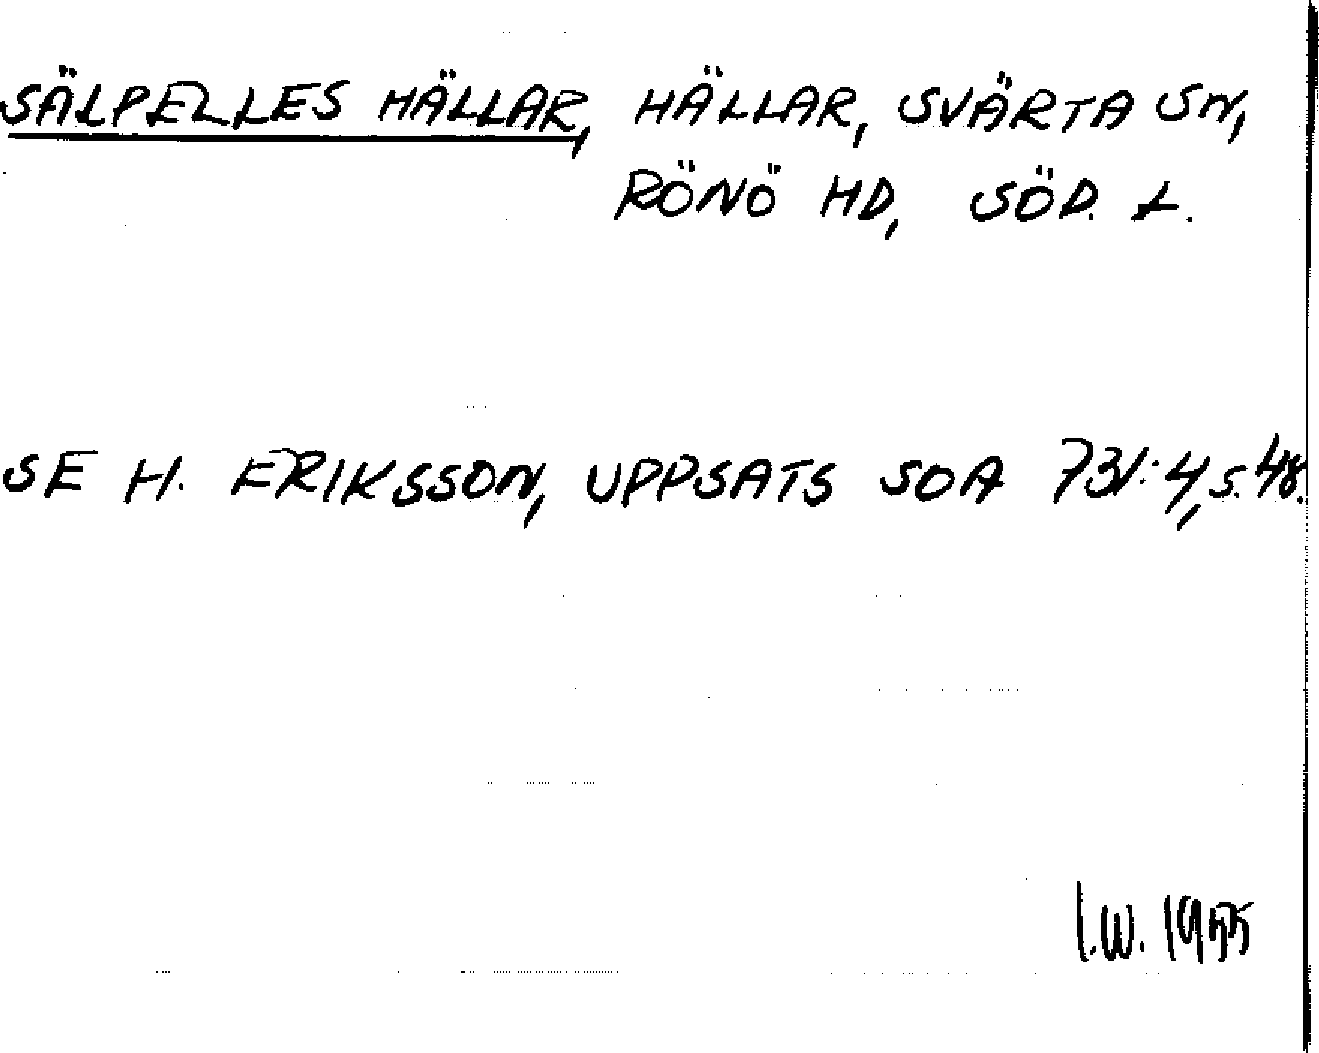 SÄLPELLES HÄLLAR, HÄLLAR, SVÄRTA SN,
RÖNÖ HD, SÖD. L.
SE H. ERIKSSON, UPPSATS SOA 731:4, S. 48.
I.W. 1955